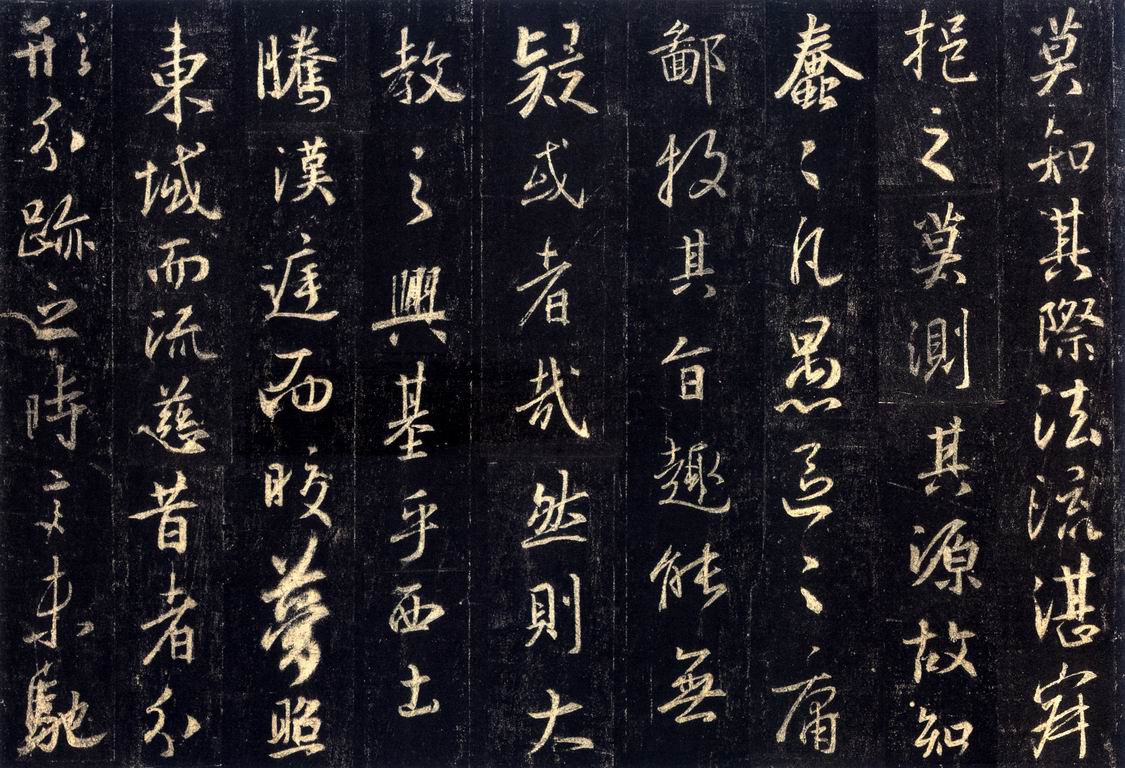 莫知其際法流湛寂
挹之莫測其源故知
蠢〻凡愚區〻庸
鄙投其旨趣能無
疑或者哉然則大
教之興基乎西土
騰漢庭而皎夢照
東域而流慈昔者分
形分跡之時言未馳